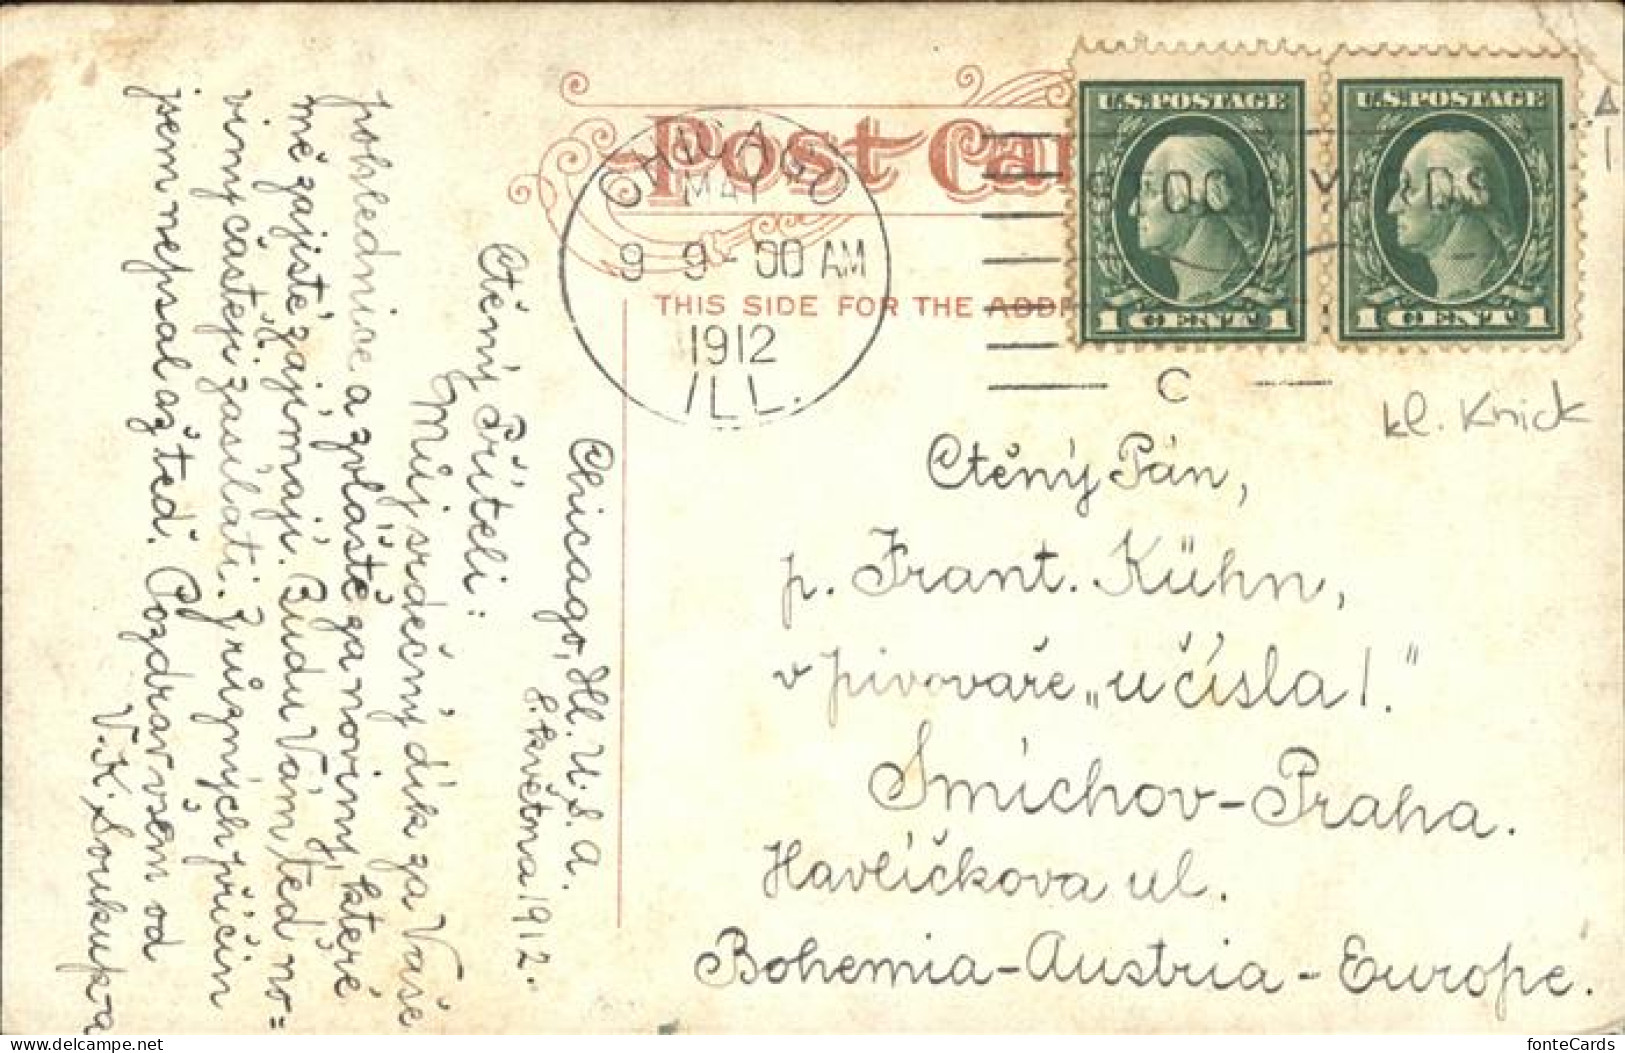 Post Car
THIS SIDE FOR THE ADDR
CHICAGO
MAY
9 9-00 AM
1912
ILL.
STOCK YARDS
C
U.S.POSTAGE
1 CENT 1
U.S.POSTAGE
1 CENT 1
kl. Knick
Chicago, Ill. U.S.A.
8. května 1912.
Ctěný Příteli:
Můj srdečný dík za Vaše
pohlednice a zvláště za noviny, které
mě zajisté zajímají. Budu Vám, teď no=
viny častěji zasílati. Z různých příčin
jsem nepsal až teď. Pozdrav všem od
V. K. Soukup-a
Ctěný Pán,
p. Frant. Kühn,
v pivovaře „u čísla 1."
Smíchov-Praha.
Havlíčkova ul.
Bohemia-Austria-Europe.
fonteCards